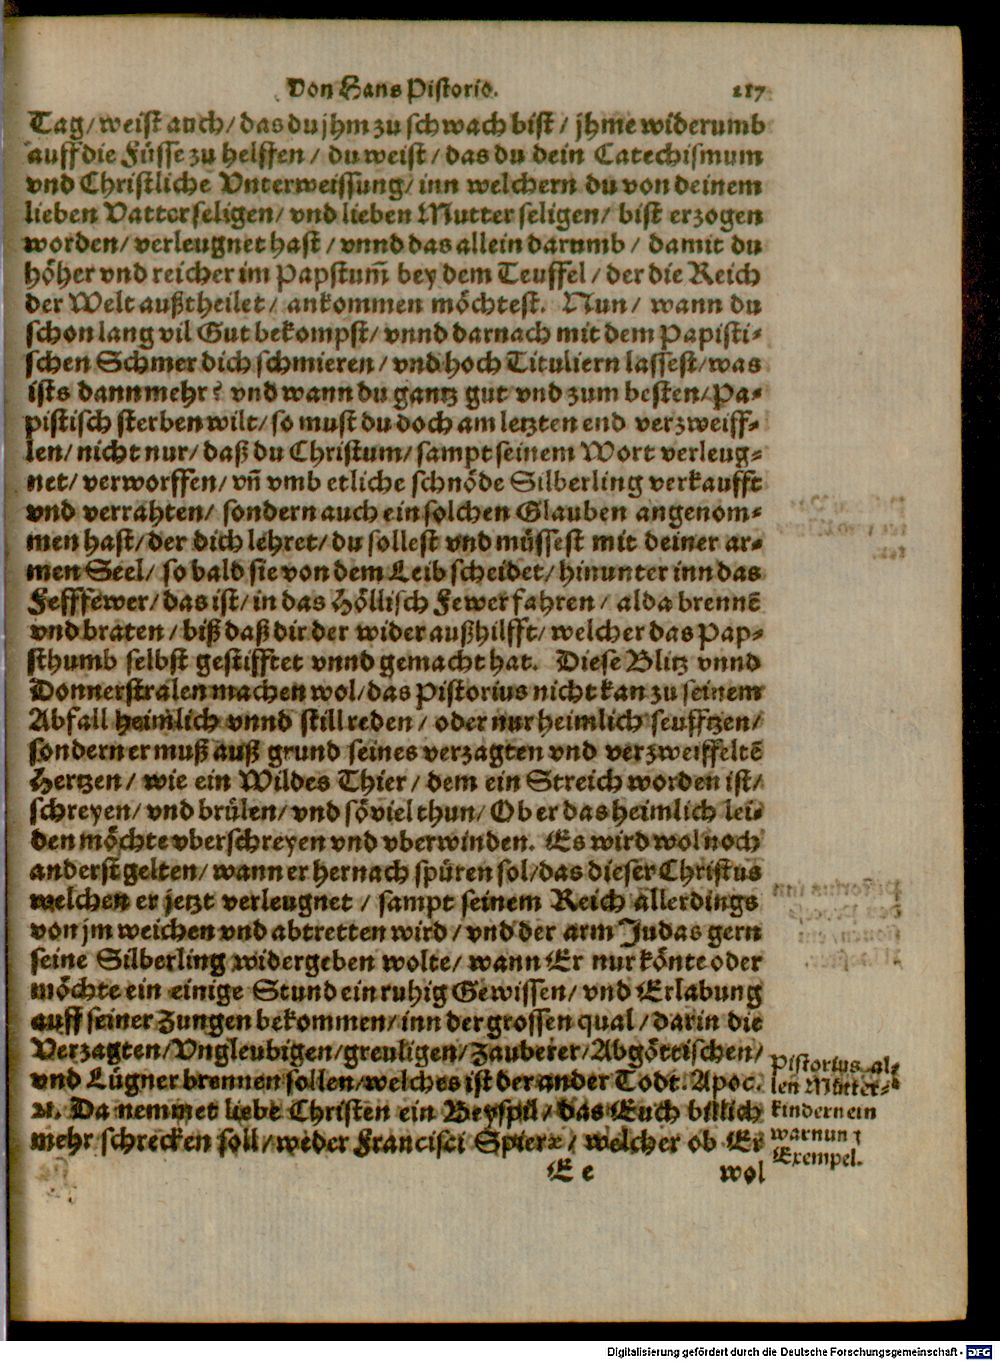 Von Hans Pistorio. 217
Tag/ weist auch/ das du jhm zu schwach bist/ jhme widerumb
auff die Füsse zu helffen/ du weist/ das du dein Catechismum
vnd Christliche Vnterweissung/ inn welchern du von deinem
lieben Vatter seligen/ vnd lieben Mutter seligen/ bist erzogen
worden/ verleugnet hast/ vnnd das allein darumb/ damit du
höher vnd reicher im Papstum̃ bey dem Teuffel/ der die Reich
der Welt außtheilet/ ankommen möchtest. Nun/ wann du
schon lang vil Gut bekompst/ vnnd darnach mit dem Papisti-
schen Schmer dich schmieren/ vnd hoch Tituliern lassest/ was
ists dann mehr? vnd wann du gantz gut vnd zum besten/ Pa-
pistisch sterben wilt/ so must du doch am letzten end verzweiff-
len/ nicht nur/ daß du Christum/ sampt seinem Wort verleug-
net/ verworffen/ vñ vmb etliche schnöde Silberling verkaufft
vnd verrahten/ sondern auch ein solchen Glauben angenom-
men hast/ der dich lehret/ du sollest vnd müssest mit deiner ar-
men Seel/ so bald sie von dem Leib scheidet/ hinunter inn das
Fefffewer/ das ist/ in das Höllisch Fewer fahren/ alda brennẽ
vnd braten/ biß daß dir der wider außhilfft/ welcher das Pap-
sthumb selbst gestifftet vnnd gemacht hat. Diese Blitz vnnd
Donnerstralen machen wol/ das Pistorius nicht kan zu seinem
Abfall heimlich vnnd still reden/ oder nur heimlich seufftzen/
sondern er muß auß grund seines verzagten vnd verzweiffeltẽ
Hertzen/ wie ein Wildes Thier/ dem ein Streich worden ist/
schreyen/ vnd brülen/ vnd sóviel thun/ Ob er das heimlich lei-
den möchte vberschreyen vnd vberwinden. Es wird wol noch
anderst gelten/ wann er hernach spüren sol/ das dieser Christus
welchen er jetzt verleugnet/ sampt seinem Reich allerdings
von jm weichen vnd abtretten wird/ vnd der arm Judas gern
seine Silberling widergeben wolte/ wann Er nur könte oder
möchte ein einige Stund ein ruhig Gewissen/ vnd Erlabung
auff seiner Zungen bekommen/ inn der grossen qual/ darin die
Verzagten/ Vngleubigen/ greuligen/ Zauberer/ Abgöttischen/
vnd Lügner brennen sollen/ welches ist der ander Todt. Apoc.
21. Da nemmet liebe Christen ein Beyspil/ das Euch billich
mehr schrecken soll/ weder Francisci Spieræ/ welcher ob Er
Pistorius al-
len Mutter-
kindern ein
warnung
Exempel.
Ee wol
Digitalisierung gefördert durch die Deutsche Forschungsgemeinschaft - DFG